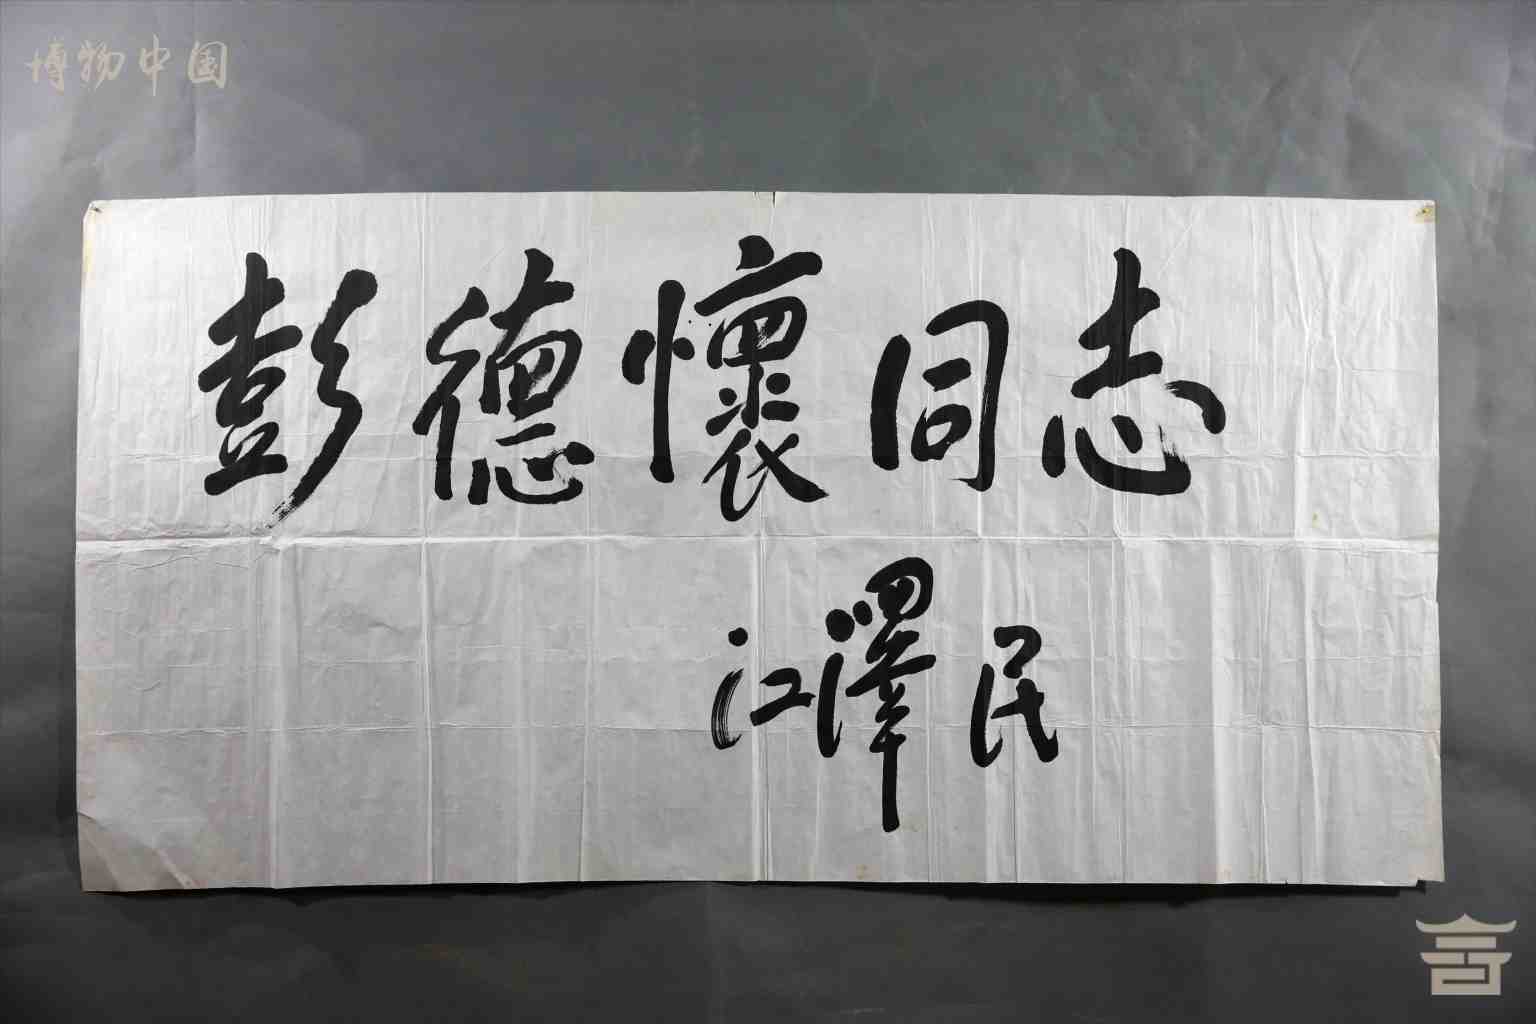 博物中国
彭德懷同志
江澤民